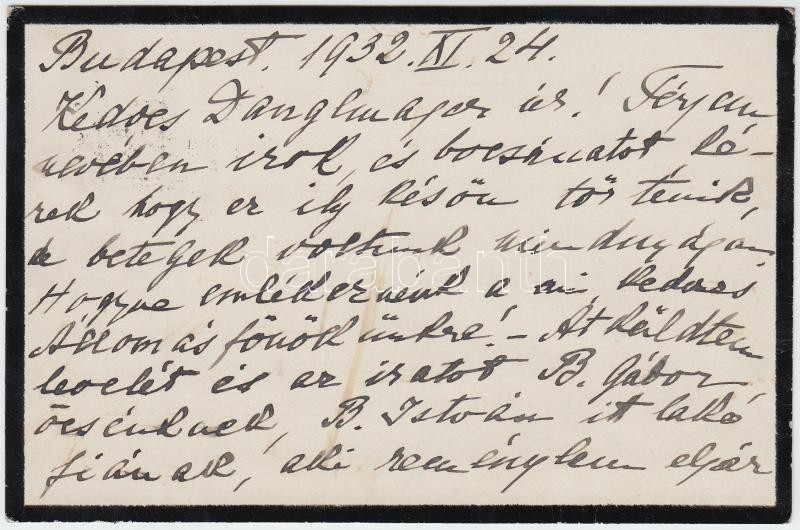 Budapest. 1932. XI. 24.
Kedves Danglmayer úr! Férjem
nevében irok, és bocsánatot ké-
rek hogy ez ily későn történik,
de betegek voltunk mindnyájan
Hogyne emlékeznénk a mi kedves
Állomásfőnökünkre! - Átküldtem
levelét és az iratot B. Gábor
öcsénknek, B. István itt lakó
fiának, aki remélhem eljár
darabanth